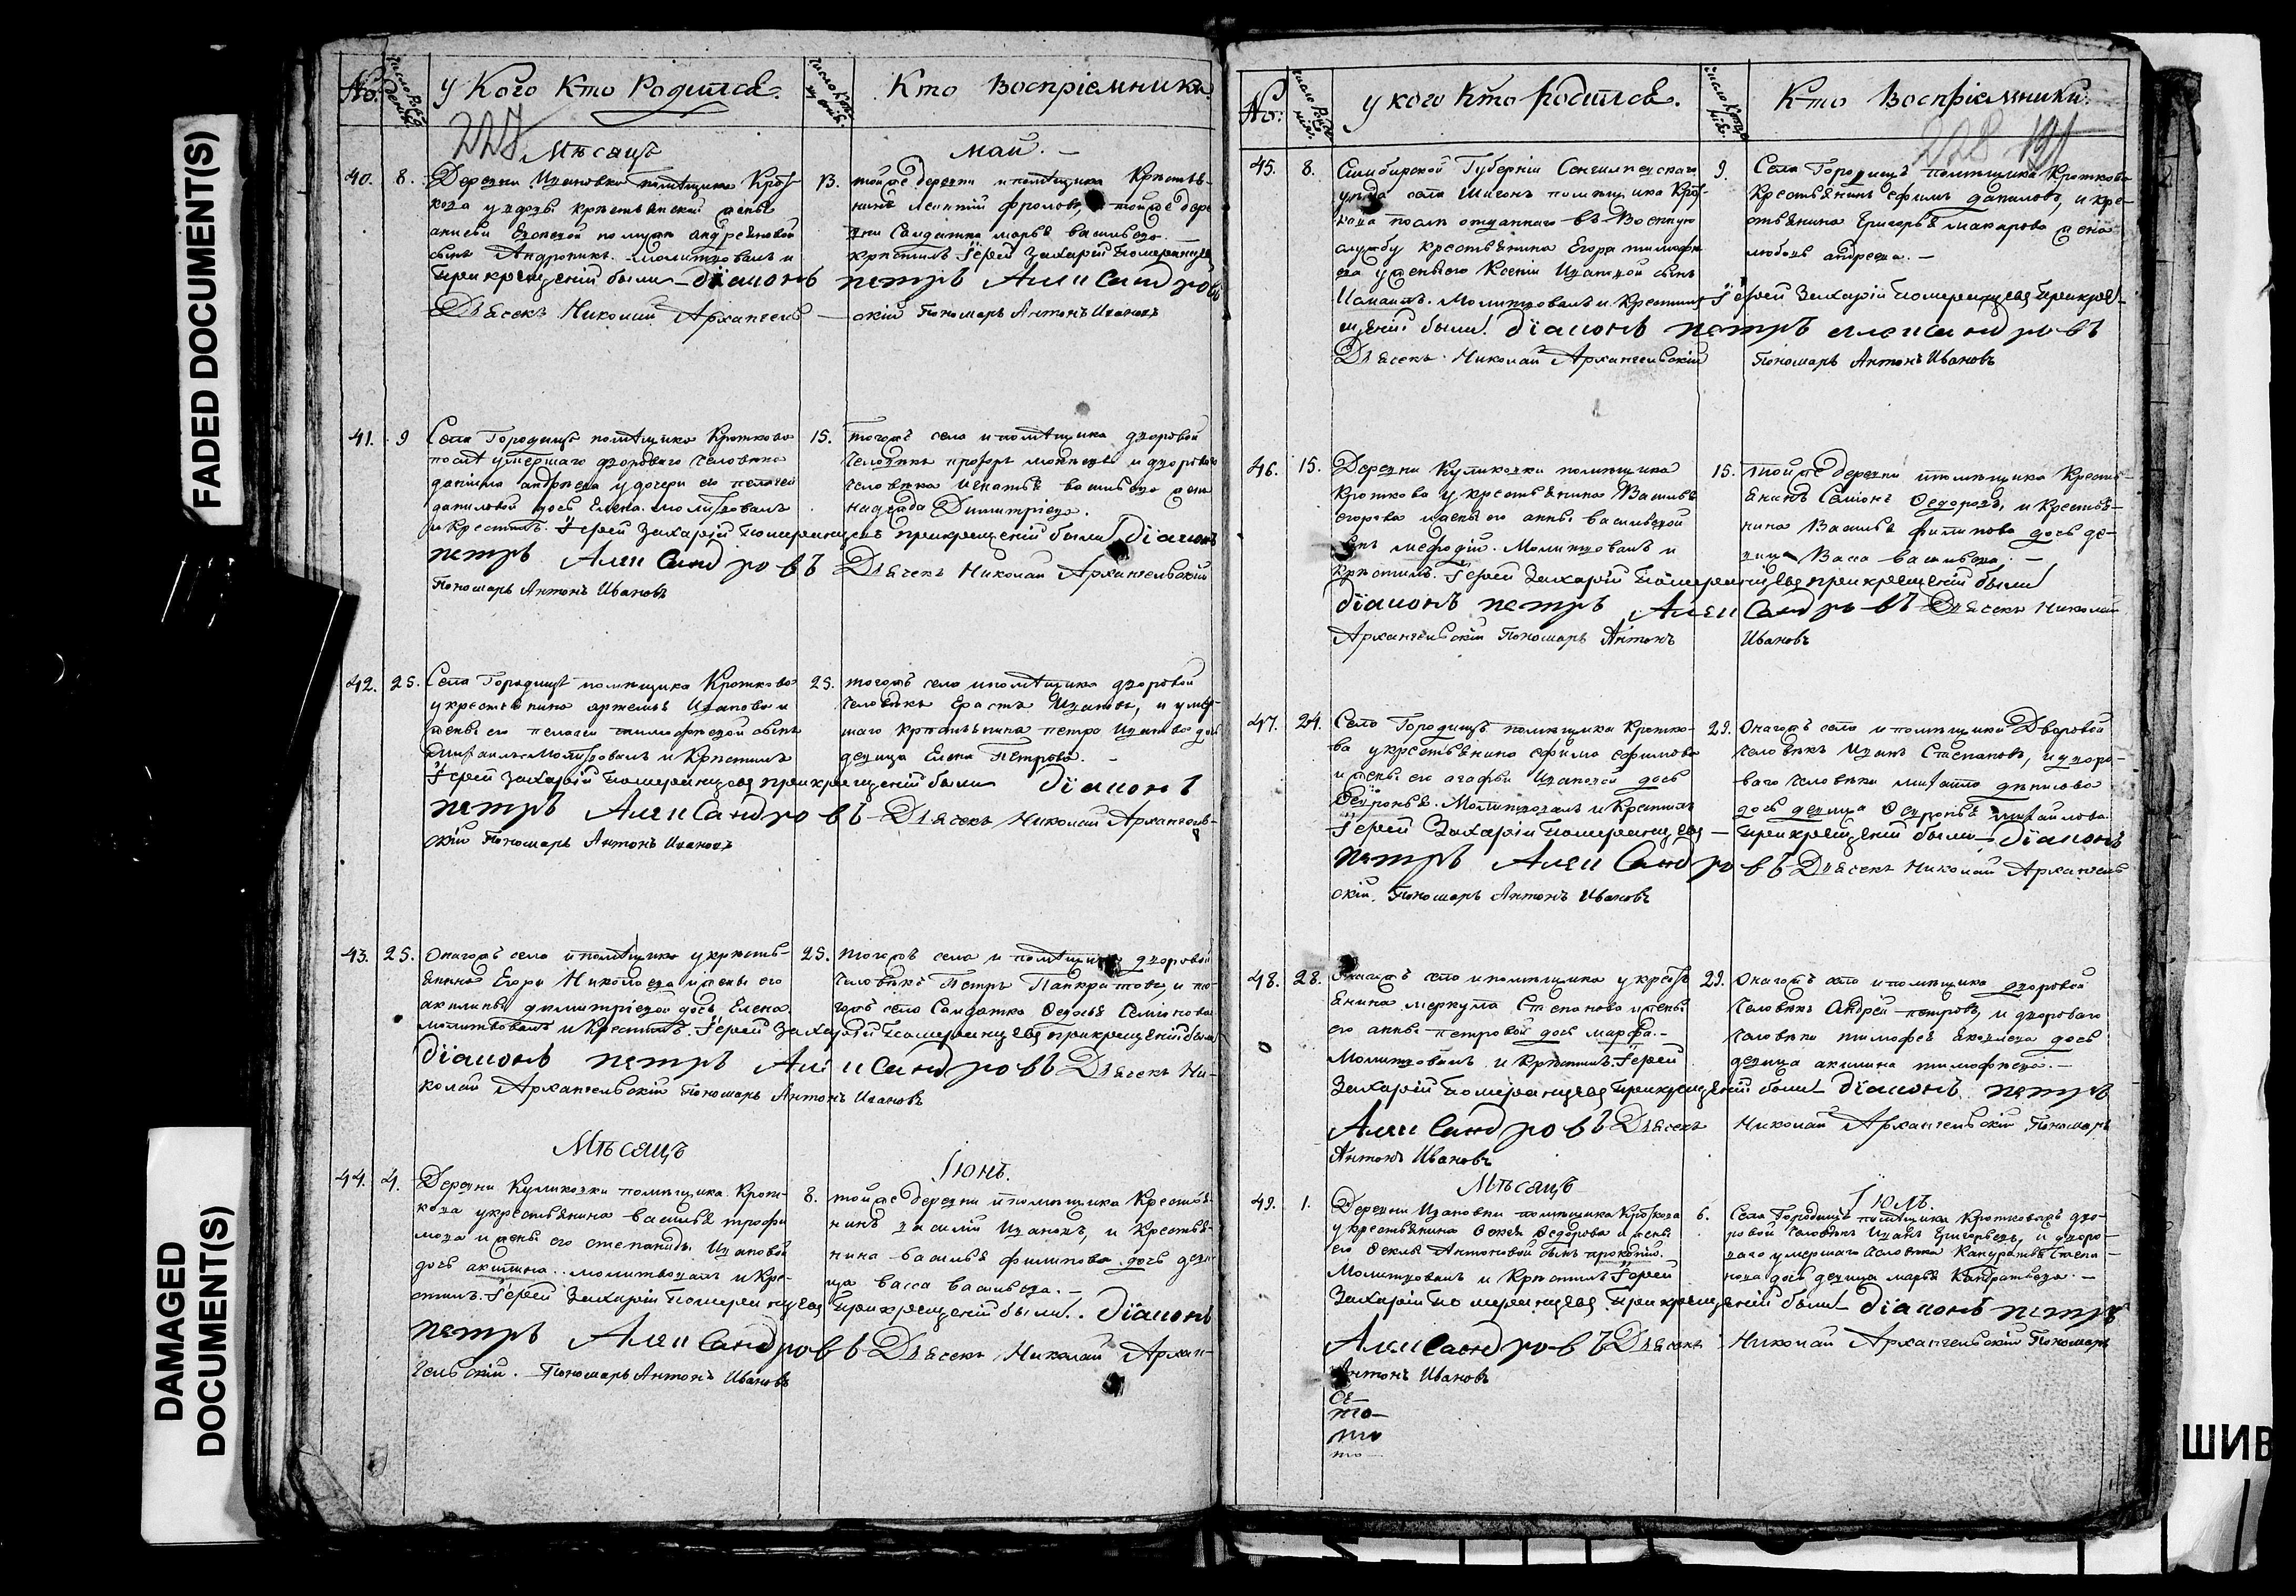 FADED DOCUMENT(S)
DAMAGED
DOCUMENT(S)
№. у Кого Кто Родился. Кто Воспріемники.
227
Мѣсяцъ Май.
40. 8. Деревни Ивановки помѣщика Крот-
кова у вдовы крестьянской жены
сынъ Андроникъ. Молитвовалъ и
При крещеніи были Діаконъ
Дьячекъ Николай Архангель
13. той же деревни и помѣщика Крестья-
нинъ Леонтій Фроловъ, и той же дере
вни Солдатка Марья Васильева.
крестилъ Іерей Захарій Померанцевъ
петръ Александровъ
скій Пономарь Антонъ Ивановъ
41. 9 Села Городищъ помѣщика Кроткова
послѣ умершаго двороваго человѣка
данила андреева у дочери его пелагеи
даниловой дочь Елена. молитвовалъ
и Крестилъ. Іерей Захарій Померанцевъ при крещеніи были Діаконъ
петръ Александровъ Дьячекъ Николай Архангельскій
Пономарь Антонъ Ивановъ
15. тогожъ села и помѣщика дворовой
человѣкъ и двороваго
человѣка Игнатья васильева жена
Надежда Димитріева.
42. 25. Села Городищъ помѣщика Кроткова
у крестьянина Иванова и
жены его пелагеи тимофеевой сынъ
Михаилъ. Молитвовалъ и Крестилъ
Іерей Захарій Померанцевъ при крещеніи были Діаконъ
петръ Александровъ Дьячекъ Николай Архангель-
скій Пономарь Антонъ Ивановъ
25. тогожъ села и помѣщика дворовой
человѣкъ Ерастъ Ивановъ, и умер-
шаго крестьянина петра Иванова дочь
девица Елена Петрова.
43. 25. Онагожъ села и помѣщика у кресть-
янина Егора Николаева и жены его
акилины димитріевой дочь Елена
молитвовалъ и Крестилъ. Іерей Захарій Померанцевъ при крещеніи были
Діаконъ петръ Александровъ Дьячекъ Ни-
колай Архангельскій Пономарь Антонъ Ивановъ
25. тогожъ села и помѣщика дворовой
человѣкъ Петръ Панкратовъ, и то-
гожъ села Солдатка Ѳедосья Семіонова
Мѣсяцъ Іюнь.
44. 4. Деревни Куликовки помѣщика Крот-
кова у крестьянина василья трофи
мова и жены его степаниды Ивановой
дочь акилина. молитвовалъ и Кре-
стилъ. Іерей Захарій Померанцевъ При крещеніи были. Діаконъ
петръ Александровъ Дьячекъ Николай Архан-
гельскій. Пономарь Антонъ Ивановъ
8. той же деревни и помѣщика Крестья-
нинъ василій Ивановъ, и Крестья-
нина василья филипова дочь деви-
ца васса васильева.
№. у кого Кто родился. Кто Воспріемники.
228
45. 8. Симбирской Губерніи Сенгилеевскаго
уѣзда села Шигонъ помѣщика Крот-
кова послѣ отданнаго въ Военную
службу крестьянина Егора тимофе
ева у жены его Ксеніи Ивановой сынъ
Молитвовалъ и Крестилъ Іерей Захарій Померанцевъ При крее-
щеніи были. Діаконъ петръ александровъ
Дьячекъ Николай Архангельскій Пономарь Антонъ Ивановъ
9. Села Городищъ помѣщика Кроткова
Крестьянинъ Ефимъ даниловъ, и кре-
стьянина Григорья макарова жена
любовь андреева.
46. 15. Деревни Куликовки помѣщика
Кроткова у крестьянина Василья
егорова и жены его анны васильевой
сынъ мефодій. Молитвовалъ и
крестилъ. Іерей Захарій Померанцевъ при крещеніи были
Діаконъ петръ Александровъ Дьячекъ Николай
Архангельскій Пономарь Антонъ Ивановъ
15. той же деревни и помѣщика Кресть-
янинъ Семіонъ Ѳедоровъ, и Крестья-
нина Василья филипова дочь де-
вица Васса васильева.
47. 24. Села Городищъ помѣщика Кротко-
ва у крестьянина ефима ефимова
и жены его агафьи Ивановой дочь
Ѳевронья. Молитвовалъ и Крестилъ
Іерей Захарій Померанцевъ При крещеніи были Діаконъ
петръ Александровъ Дьячекъ Николай Архангель
скій. Пономарь Антонъ Ивановъ
29. Онагожъ села и помѣщика Дворовой
человѣкъ Иванъ Степановъ, и дворо-
ваго человѣка михаила денисова
дочь девица Ѳевронья михайлова.
48. 28. Онагожъ села и помѣщика у кресть
янина меркула Степанова и жены
его анны петровой дочь марфа.
Молитвовалъ и Крестилъ Іерей
Захарій Померанцевъ При крещеніи были Діаконъ петръ
Александровъ Дьячекъ Николай Архангельскій Пономарь
Антонъ Ивановъ
29. Онагожъ села и помѣщика дворовой
человѣкъ Андрей петровъ, и двороваго
человѣка тимофея яковлева дочь
девица акилина тимофеева.
Мѣсяцъ Іюль.
49. 1. Деревни Ивановки помѣщика Кроткова
у крестьянина Ѳедорова и жены
его Ѳеклы Антоновой сынъ прокопій.
Молитвовалъ и Крестилъ Іерей
Захарій Померанцевъ. При крещеніи были Діаконъ петръ
Александровъ Дьячекъ Николай Архангельскій Пономарь
Антонъ Ивановъ
6. Села Городищъ помѣщика Кроткова дво-
ровой человѣкъ Иванъ Григорьевъ, и дворо-
ваго умершаго человѣка Кандратья Степа-
нова дочь девица марья Кандратьева.
то
то
то
ШИВ